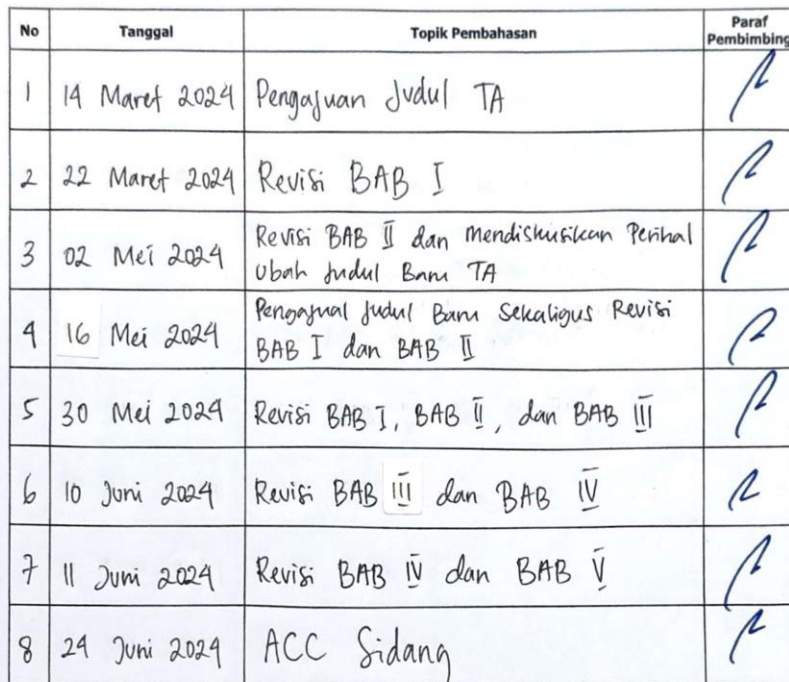 No Tanggal Topik Pembahasan Paraf
Pembimbing
1 14 Maret 2024 Pengajuan Judul TA
2 22 Maret 2024 Revisi BAB I
3 02 Mei 2024 Revisi BAB II dan Mendiskusikan Perihal
Ubah Judul Baru TA
4 16 Mei 2024 Pengajual Judul Baru Sekaligus Revisi
BAB I dan BAB II
5 30 Mei 2024 Revisi BAB I, BAB II, dan BAB III
6 10 Juni 2024 Revisi BAB III dan BAB IV
7 11 Juni 2024 Revisi BAB IV dan BAB V
8 24 Juni 2024 ACC Sidang